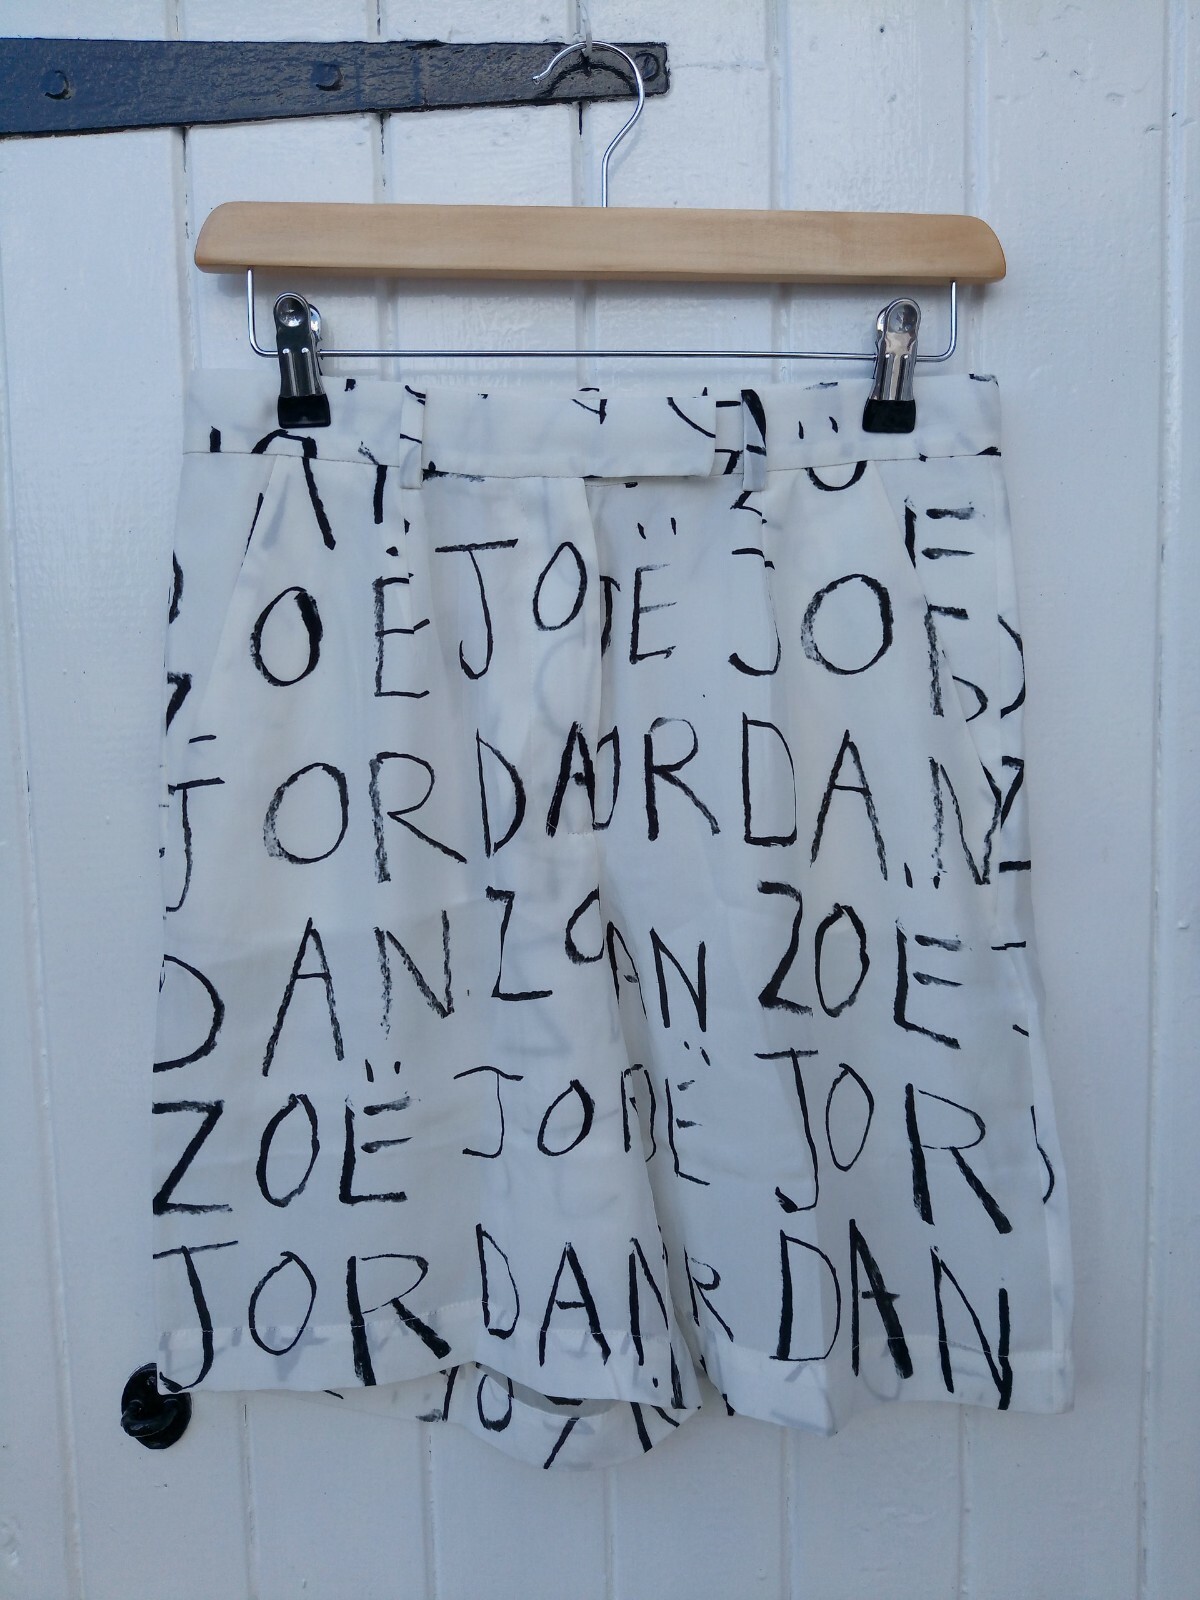 OË JOË JOR
JORDAN RDAN
DAN ZO AN ZOË
ZOË JO E JOR
JORDAN R DAN